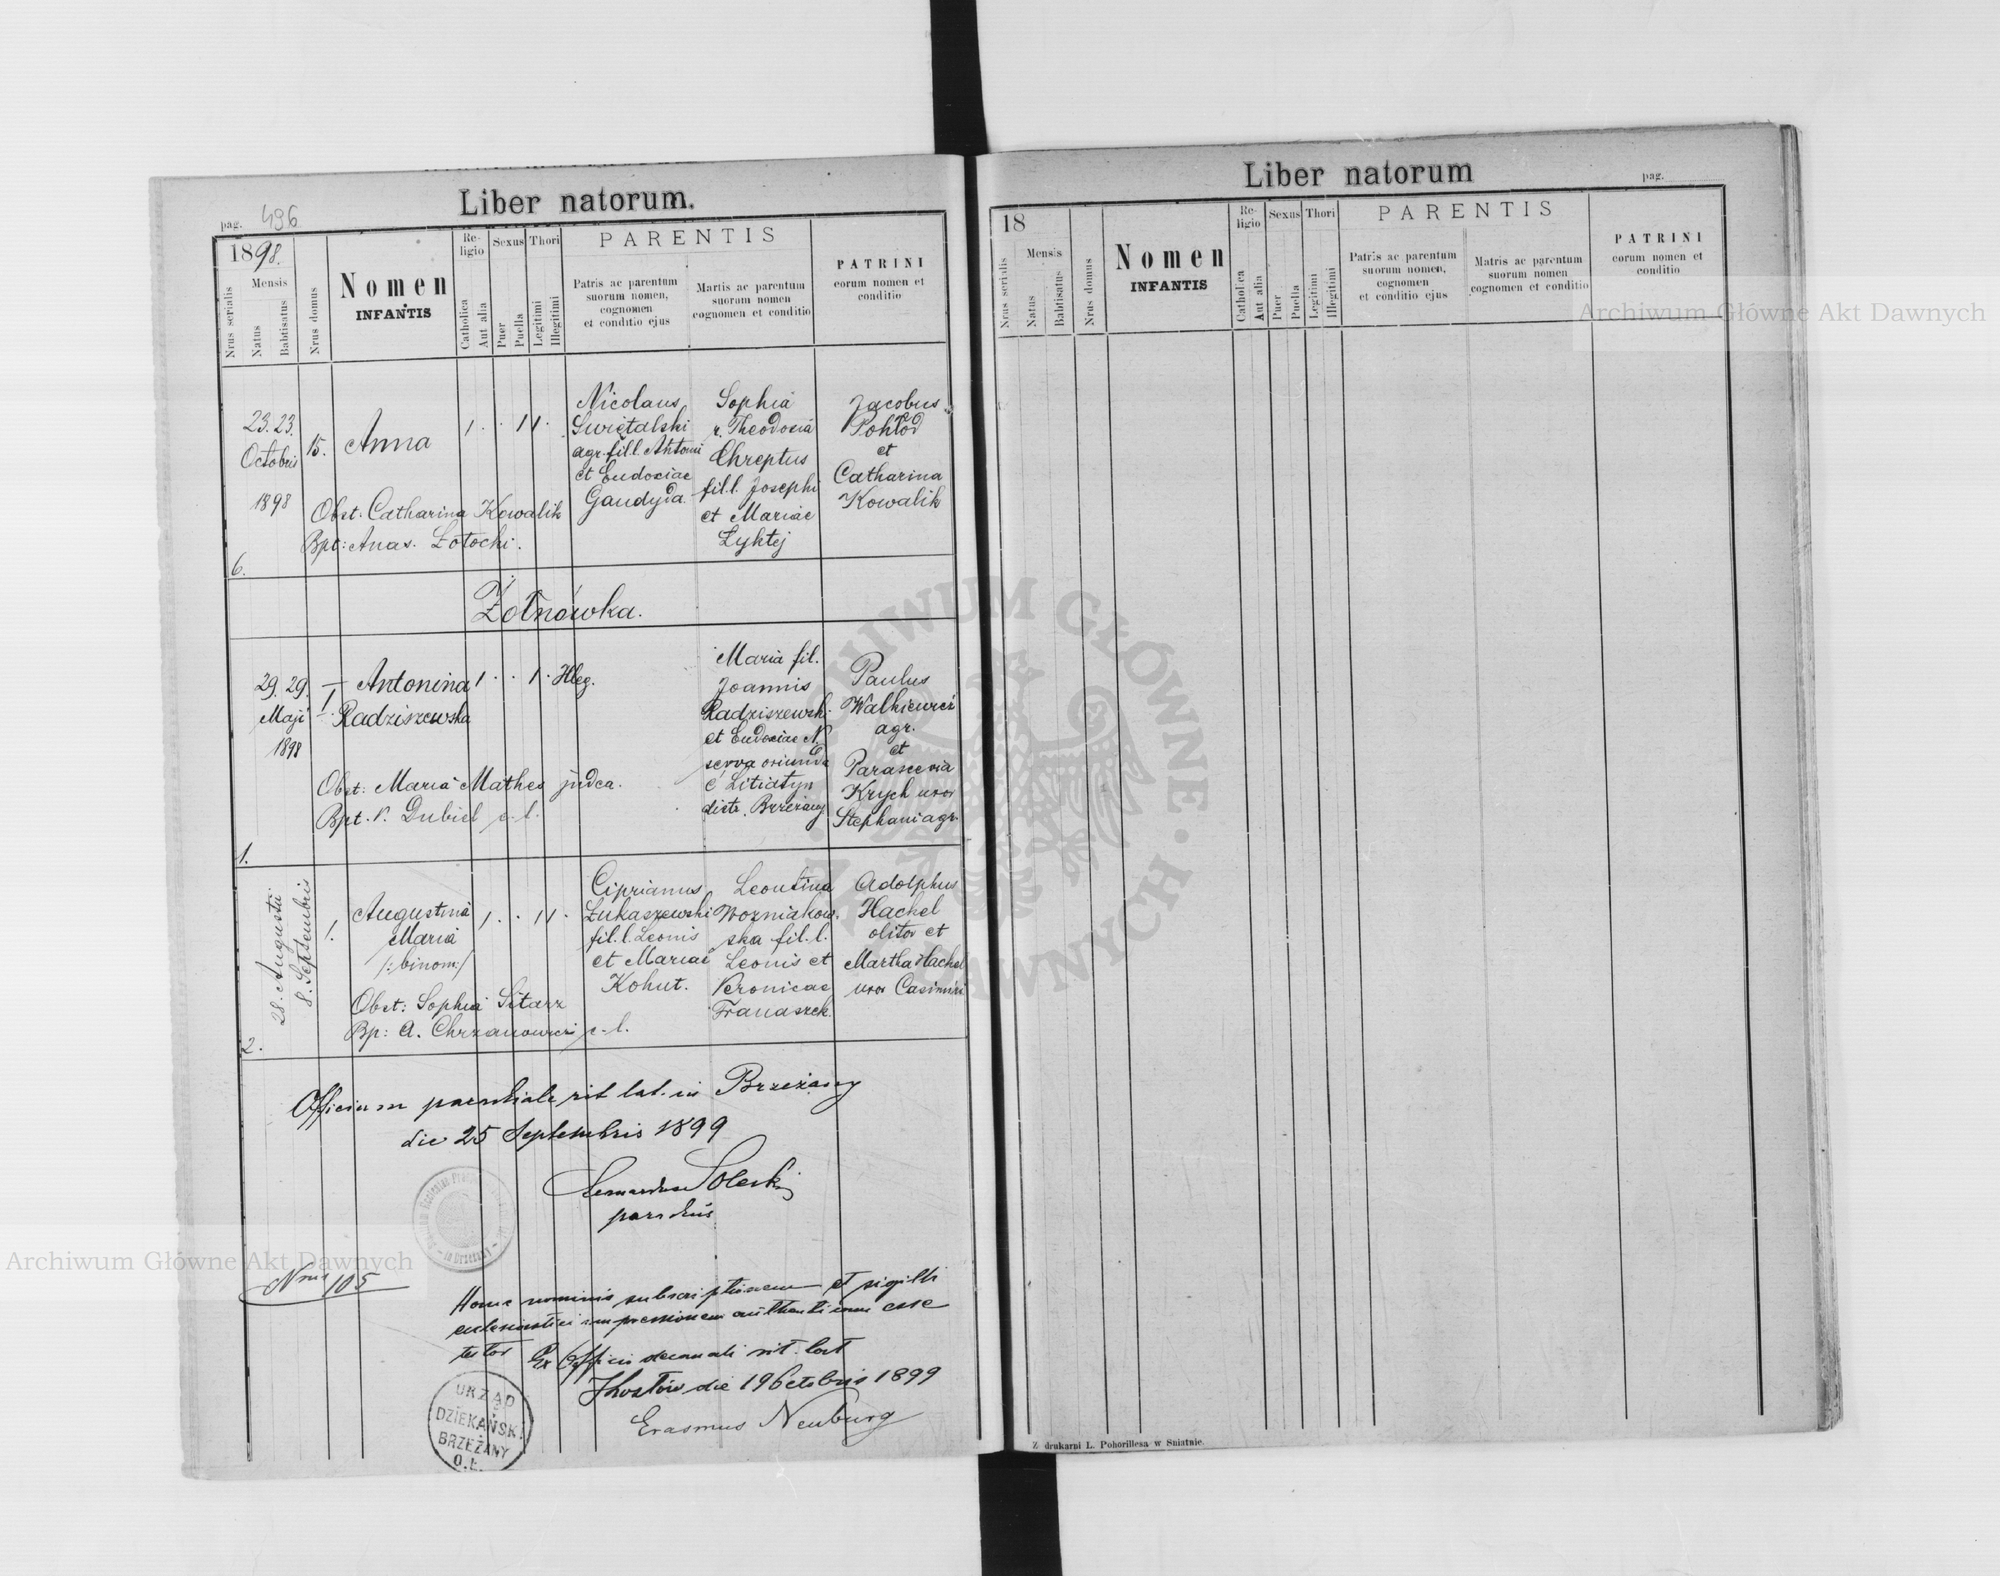 Liber natorum.
pag. 496
1898.
Nrus serialis
Mensis
Natus
Babtisatus
Nrus domus
Nomen
INFANTIS
Re-
ligio
Catholica
Aut alia
Sexus
Puer
Puella
Thori
Legitimi
Illegitimi
PARENTIS
Patris ac parentum
suorum nomen,
cognomen
et conditio ejus
Martis ac parentum
suorum nomen
cognomen et conditio
PATRINI
eorum nomen et
conditio
23. 23.
Octobris
1898
15.
Anna
1 . . 1 1 .
Nicolaus
Świętalski
agr. fil. l. Antoni
et Eudoxiae
Gaudyda
Sophia
r. Theodosia
Chreptus
fil. l. Josephi
et Mariae
Łyktej
Jacobus
Pohłod
et
Catharina
Kowalik
Obst. Catharina Kowalik
Bpt: Anas. Łotocki.
6.
Żołnówka.
29. 29.
Maji
1898
Antonina
Radziszewska
1 . . 1 . Illeg.
Maria fil.
Joannis
Radziszewski
et Eudoxiae N.
serva oriunda
e Litiatyn
distr. Brzeżany
Paulus
Walkiewicz
agr.
et
Parascevia
Krych uxor
Stephani agr.
Obst: Maria Mathes judca.
Bpt. V. Dubiel c. l.
1.
28. Augusti
8. Septembris
1.
Augustina
Maria
/: binom :/
1 . . 1 1 .
Ciprianus
Łukaszewski
fil. l. Leonis
et Mariae
Kohut.
Leontina
Wozniakow-
ska fil. l.
Leonis et
Veronicae
Franaszek
Adolphus
Hachel
olitor et
Martha Hachel
uxor Casimiri
Obst: Sophia Sitarz
Bp: A. Chrzanowicz c. l.
2.
Officium parochiale rit lat. in Brzeżany
die 25 Septembris 1899
Solecki
parochus
in Brzeżany
Nrus 105
Hanc nominis subscriptionem et sigilli
ecclesiastici impressionem authenticam esse
testor Ex Officio decanali rit. lat
die 1 Octobris 1899
Erasmus Neuburg
URZĄD
DZIEKAŃSKI
BRZEŻANY
O. Ł.
Liber natorum
pag.
18
Nrus serialis
Mensis
Natus
Babtisatus
Nrus domus
Nomen
INFANTIS
Re-
ligio
Catholica
Aut alia
Sexus
Puer
Puella
Thori
Legitimi
Illegitimi
PARENTIS
Patris ac parentum
suorum nomen,
cognomen
et conditio ejus
Matris ac parentum
suorum nomen
cognomen et conditio
PATRINI
eorum nomen et
conditio
Z drukarni L. Pohorillesa w Sniatnie.
Archiwum Główne Akt Dawnych
Archiwum Główne Akt Dawnych